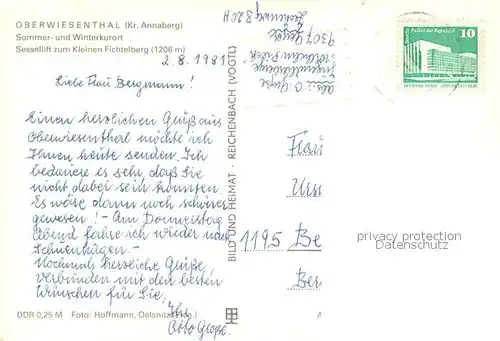 OBERWIESENTHAL (Kr. Annaberg)
Sommer- und Winterkurort
Sessellift zum Kleinen Fichtelberg (1206 m)
2.8.1981
Liebe Frau Bergmann!
Einen herzlichen Gruß aus
Oberwiesenthal möchte ich
Ihnen heute senden. Ich
bedauere es sehr, daß Sie
nicht dabei sein konnten.
Es wäre dann noch schöner
gewesen! - Am Donnerstag
Abend fahre ich wieder nach
Nochmals herzliche Grüße,
verbunden mit den besten
Wünschen für Sie,
Ihr
Otto Große
DDR 0,25 M Foto: Hoffmann, Oelsnitz
BILD UND HEIMAT · REICHENBACH (VOGTL)
9307
Palast der Republik
10
Frau
1195 Be
Ber
privacy protection
Datenschutz